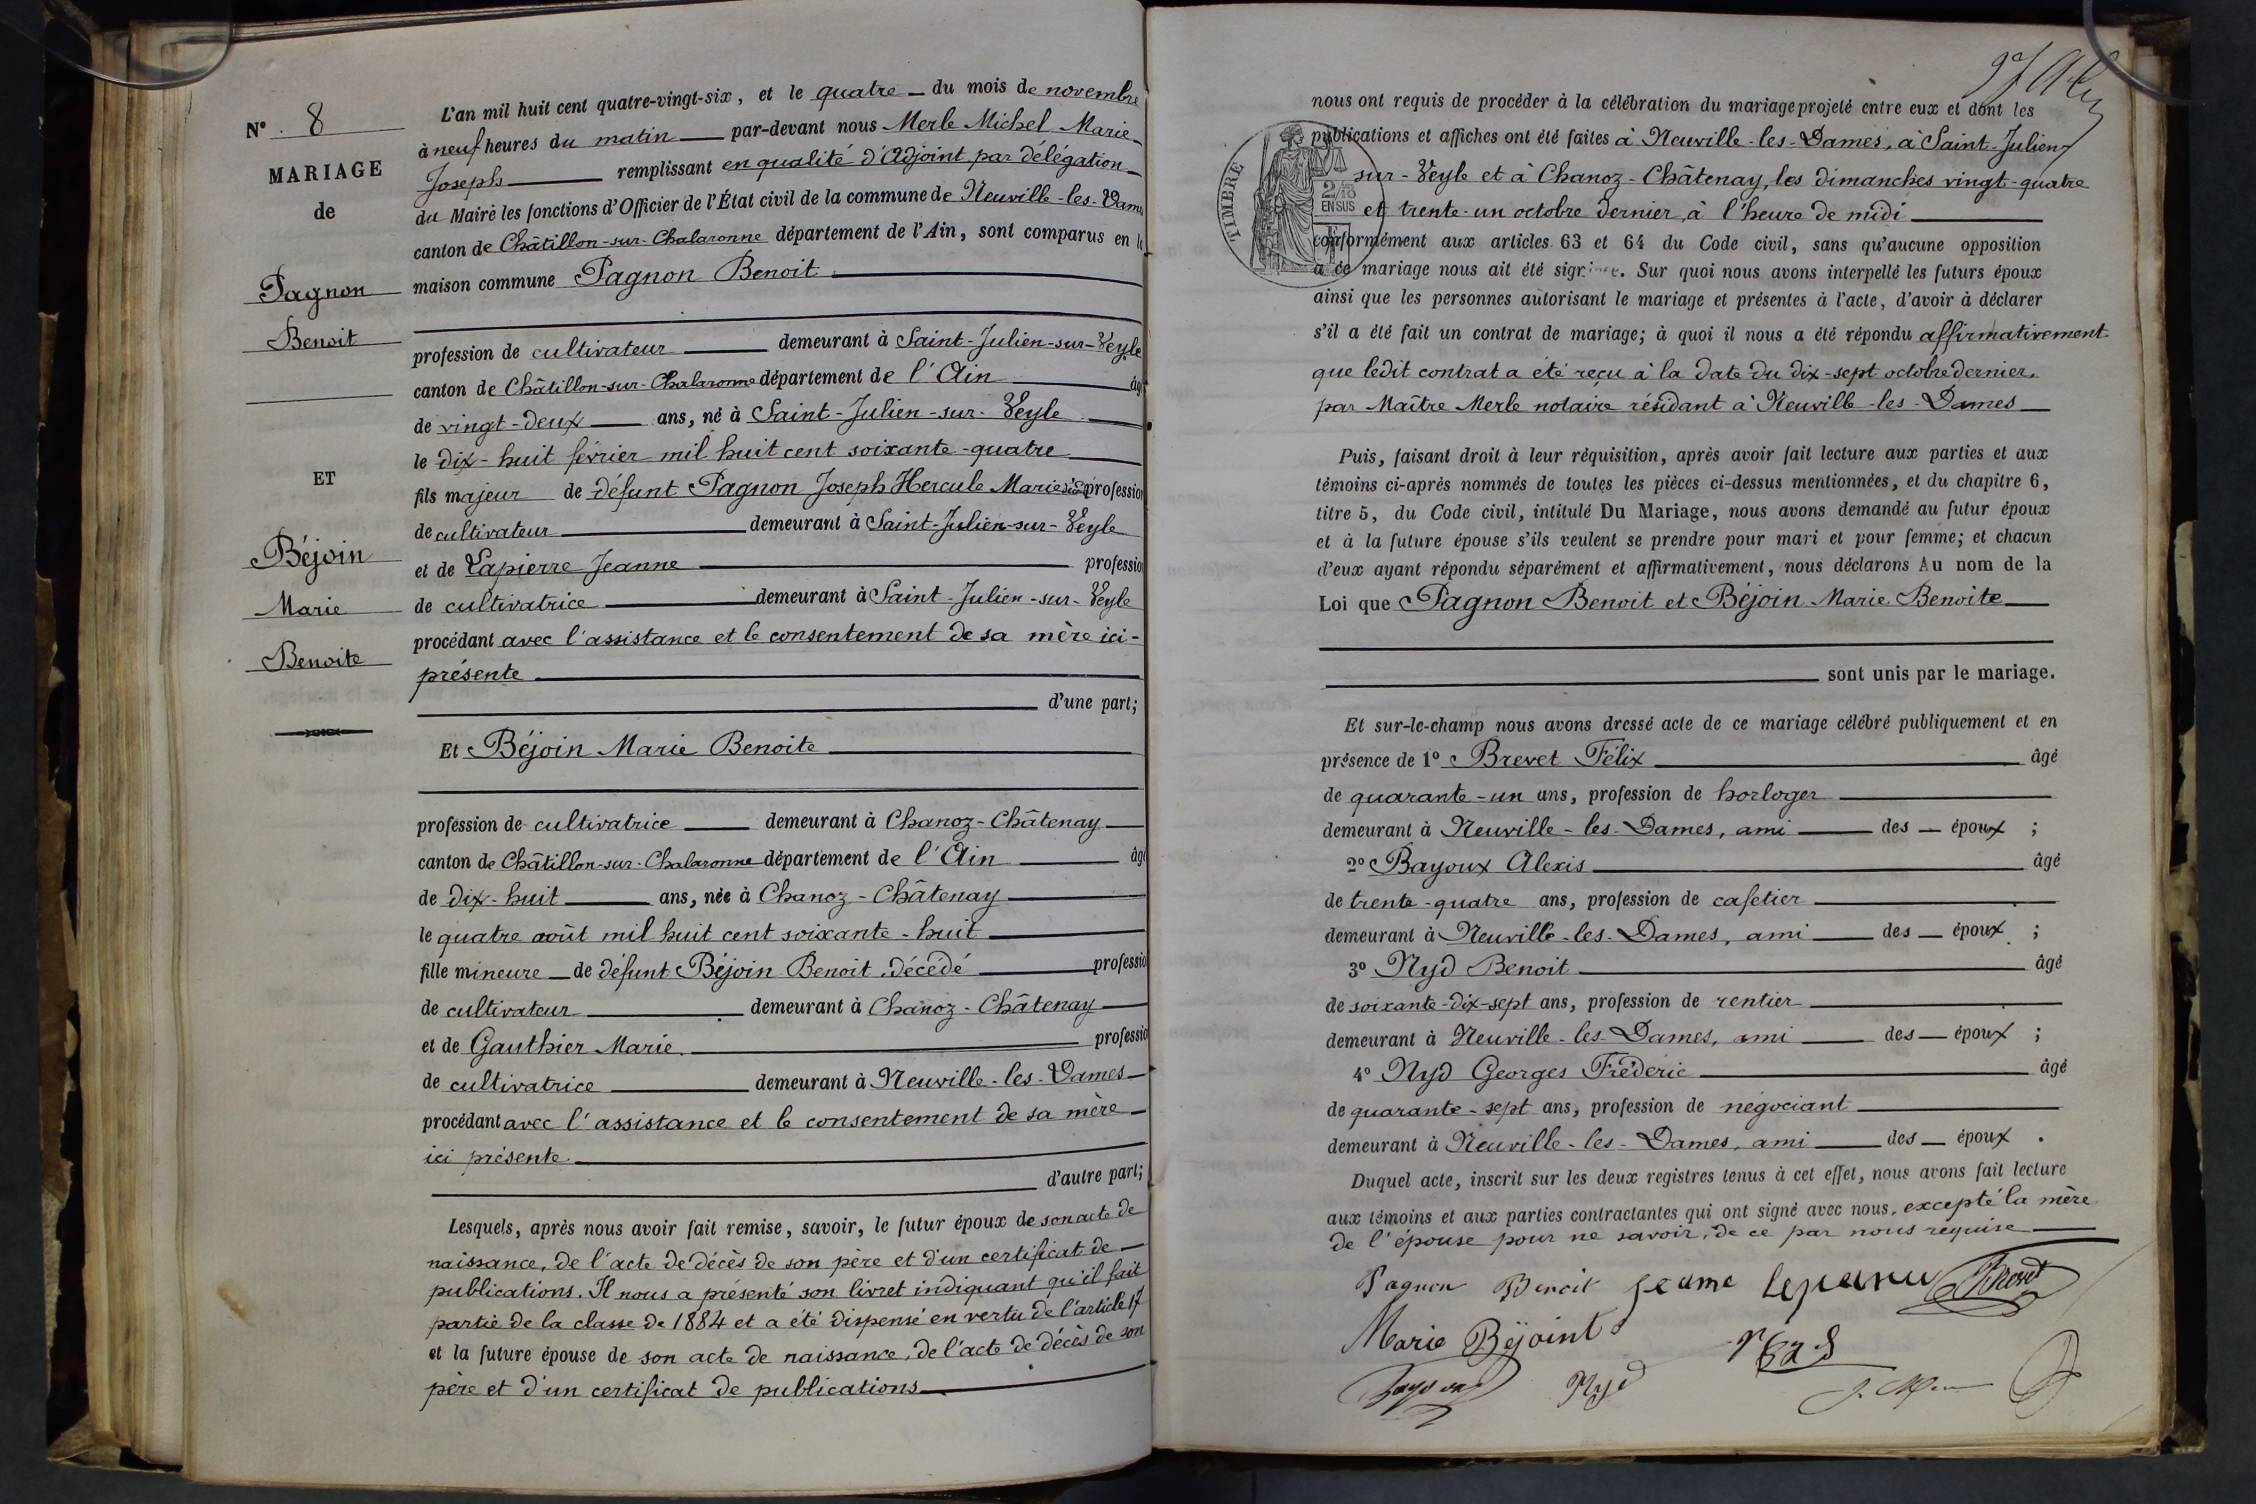 N° 8
MARIAGE
de
Pagnon
Benoit
ET
Béjoin
Marie
Benoite
L'an mil huit cent quatre-vingt-six, et le quatre du mois de novembre
à neuf heures du matin par-devant nous Merle Michel Marie
Joseph remplissant en qualité d'Adjoint par délégation
du Maire les fonctions d'Officier de l'État civil de la commune de Neuville-les-Dames
canton de Châtillon-sur-Chalaronne département de l'Ain, sont comparus en la
maison commune Pagnon Benoit
profession de cultivateur demeurant à Saint-Julien-sur-Veyle
canton de Châtillon-sur-Chalaronne département de l'Ain âgé
de vingt-deux ans, né à Saint-Julien-sur-Veyle
le dix-huit février mil huit cent soixante-quatre
fils majeur de défunt Pagnon Joseph Hercule Marie profession
de cultivateur demeurant à Saint-Julien-sur-Veyle
et de Lapierre Jeanne profession
de cultivatrice demeurant à Saint-Julien-sur-Veyle
procédant avec l'assistance et le consentement de sa mère ici-
présente
d'une part;
Et Béjoin Marie Benoite
profession de cultivatrice demeurant à Chanoz-Châtenay
canton de Châtillon-sur-Chalaronne département de l'Ain âgé
de dix-huit ans, née à Chanoz-Châtenay
le quatre août mil huit cent soixante-huit
fille mineure de défunt Béjoin Benoit, décédé profession
de cultivateur demeurant à Chanoz-Châtenay
et de Gauthier Marie profession
de cultivatrice demeurant à Neuville-les-Dames
procédant avec l'assistance et le consentement de sa mère
ici présente
d'autre part;
Lesquels, après nous avoir fait remise, savoir, le futur époux de son acte de
naissance, de l'acte de décès de son père et d'un certificat de
publications. Il nous a présenté son livret indiquant qu'il fait
partie de la classe de 1884 et a été dispensé en vertu de l'article 17
et la future épouse de son acte de naissance, de l'acte de décès de son
père et d'un certificat de publications
nous ont requis de procéder à la célébration du mariage projeté entre eux et dont les
publications et affiches ont été faites à Neuville-les-Dames, à Saint-Julien-
sur-Veyle et à Chanoz-Châtenay, les dimanches vingt-quatre
et trente-un octobre dernier, à l'heure de midi
TIMBRE
2/10
EN SUS
conformément aux articles 63 et 64 du Code civil, sans qu'aucune opposition
à ce mariage nous ait été signifiée. Sur quoi nous avons interpellé les futurs époux
ainsi que les personnes autorisant le mariage et présentes à l'acte, d'avoir à déclarer
s'il a été fait un contrat de mariage; à quoi il nous a été répondu affirmativement
que ledit contrat a été reçu à la date du dix-sept octobre dernier,
par Maître Merle notaire résidant à Neuville-les-Dames
Puis, faisant droit à leur réquisition, après avoir fait lecture aux parties et aux
témoins ci-après nommés de toutes les pièces ci-dessus mentionnées, et du chapitre 6,
titre 5, du Code civil, intitulé Du Mariage, nous avons demandé au futur époux
et à la future épouse s'ils veulent se prendre pour mari et pour femme; et chacun
d'eux ayant répondu séparément et affirmativement, nous déclarons Au nom de la
Loi que Pagnon Benoit et Béjoin Marie Benoite
sont unis par le mariage.
Et sur-le-champ nous avons dressé acte de ce mariage célébré publiquement et en
présence de 1° Brevet Félix âgé
de quarante-un ans, profession de horloger
demeurant à Neuville-les-Dames, ami des époux ;
2° Bayoux Alexis âgé
de trente-quatre ans, profession de cafetier
demeurant à Neuville-les-Dames, ami des époux ;
3° Nyd Benoit âgé
de soixante-dix-sept ans, profession de rentier
demeurant à Neuville-les-Dames, ami des époux ;
4° Nyd Georges Frédéric âgé
de quarante-sept ans, profession de négociant
demeurant à Neuville-les-Dames, ami des époux .
Duquel acte, inscrit sur les deux registres tenus à cet effet, nous avons fait lecture
aux témoins et aux parties contractantes qui ont signé avec nous, excepté la mère
de l'épouse pour ne savoir, de ce par nous requise
Pagnon Benoit Jeanne
Marie Béjoint
Nyd